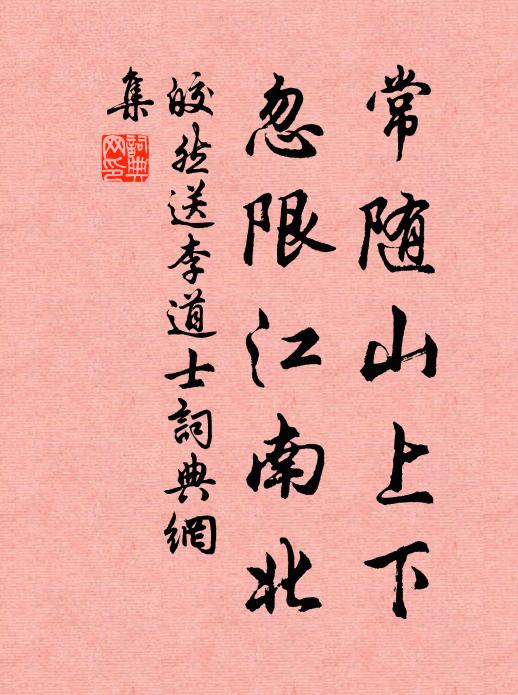 常随山上下
忽限江南北
皎然送李道士詞典網
集
詞典
网印